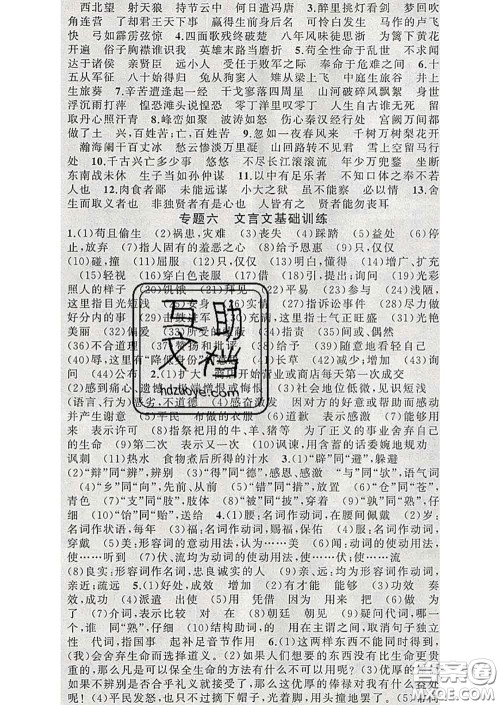 西北望 射天狼 持节云中 何日遣冯唐 3.醉里挑灯看剑 梦回吹
角连营 了却君王天下事 赢得生前身后名 可怜白发生 马作的卢飞
快 弓如霹雳弦惊 4.四面歌残终破楚 八年风味徒思浙 为篱下黄花
开遍 俗子胸襟谁识我 英雄末路当磨折 5.苟全性命于乱世 不求闻
达于诸侯 亲贤臣 远小人 受任于败军之际 奉命于危难之间 6.十
五从军征 八十始得归 兔从狗窦入 雉从梁上飞 中庭生旅谷 井上
生旅葵 7.辛苦遭逢起一经 干戈寥落四周星 山河破碎风飘絮 身世
浮沉雨打萍 惶恐滩头说惶恐 零丁洋里叹零丁 人生自古谁无死 留
取丹心照汗青 8.峰峦如聚 波涛如怒 伤心秦汉经行处 宫阙万间都
做了土 兴,百姓苦;亡,百姓苦 9.忽如一夜春风来 千树万树梨花开
瀚海阑干百丈冰 愁云惨淡万里凝 山回路转不见君 雪上空留马行
处 10.千古兴亡多少事 悠悠 不尽长江滚滚流 年少万兜鍪 坐断
东南战未休 天下英雄谁敌手 11.以中有足乐者 不知口体之奉不若人
也 12.肉食者鄙 未能远谋 小大之狱 虽不能察 必以情 13.舍
生而取义者也 非独贤者有是心也 人皆有之 贤者能勿丧耳
专题六 文言文基础训练
1.(1)苟且偷生 (2)祸患,灾难 (3)丧失 (4)践踏 (5)益处 (6)停
止,放弃 (7)指人固有的羞恶之心 (8)给予恩惠 (9)只,仅仅
(10)碰,撞 (11)屈服 (12)只,仅仅 (13)明白,懂得 (14)增广、扩充
(15)仅仅 (16)穿白色丧服 (17)借 (18)引,提出;询问 (19)光彩
照人的样子 (20)饥饿 (21)拜见 (22)平易 (23)参与 (24)浅陋,
这里指目光短浅 (25)安身 (26)实情 (27)指诉讼事件 (28)尽力做
好分内的事 (29)击鼓进军 (30)士兵,这里指士气正旺盛 (31)光艳
美丽 (32)偏爱 (33)所 (34)应答 (35)间或、偶然
(36)不合道理 (37)赞扬和批评 (38)给予 (39)随意地看轻自己
(40)辱,这里有"降低身份" (42)减少;增加 (43)增加 (44)询
问 (45)公布 2.(1)指 开始营业或商店每天第一次成交
(2)感到痛心,遗憾 憎恨或悔恨 (3)社会地位低微,见识短浅
(语言、行为)恶劣,不道德 (4)感奋激发 因对方的好意或帮助而感动
并产生谢意 (5)平民 布做的衣服 (6)道歉 表示感激 (7)可以用
来 表示许可 (8)指祭祀用的牛、羊、猪等 为了正义的事业舍弃自己
的生命 (9)第二次 表示又一次 (10)讽谏,用含蓄的话委婉地规劝
讽刺 (11)热水 食物煮后所得的汁水 3.(1)"辟"同"避",躲避
(2)"辩"同"辨",辨别 (3)"得"同"德",感恩、感激 "与"同"欤",语气词
(4)"乡"同"向",先前、从前 (5)"错"同"措",放置 (6)"仓"同"苍",
青色 (7)"支"同"肢" (8)"被"同"披",穿着 (9)"孰"同"熟",仔细
(10)"诒"同"贻",送给 4.(1)腰:名词作动词,在腰间佩戴 (2)岁:
名词作状语,每年 (3)福:名词作动词,赐福、保佑 (4)服:名词作动词,
穿戴 (5)美:形容词的意动用法,以……为美 (6)闻:动词的使动用法,
使……听到 (7)伏、流均为动词的使动用法,使……伏、使……流
(8)良实:形容词作名词,忠良诚实的人 (9)亲、远:均为形容词作动词,
亲近;疏远 5.(1)好处,成效 增加 (2)有才能 能够 (3)功效 奏
效,成功 (4)派遣 出使 (5)用 因为 因 用来 把 (6)做 为
了 (7)介词,表示比较 对 在 (8)朝廷 朝见 (9)疑问代词,哪一
个,谁 同"熟",仔细 (10)结构助词,的 用在主谓之间,取消句子独立
性 代词,指国事 起补足音节作用 6.(1)这两样东西不能同时得到,
(我)会舍弃生命而选择大义。 (2)如果人们想要的东西没有比生命更贵
重的,那么凡是可以保全生命的方法有什么不可以用呢? (3)优厚的俸禄
如果不辨别是否合乎礼义就接受了,那么这优厚的俸禄对我有什么益处
呢! (4)平民发怒,也只不过是摘掉帽子,光着脚,用头撞地罢了。
互助文档
hdzuoye.com
作业精灵